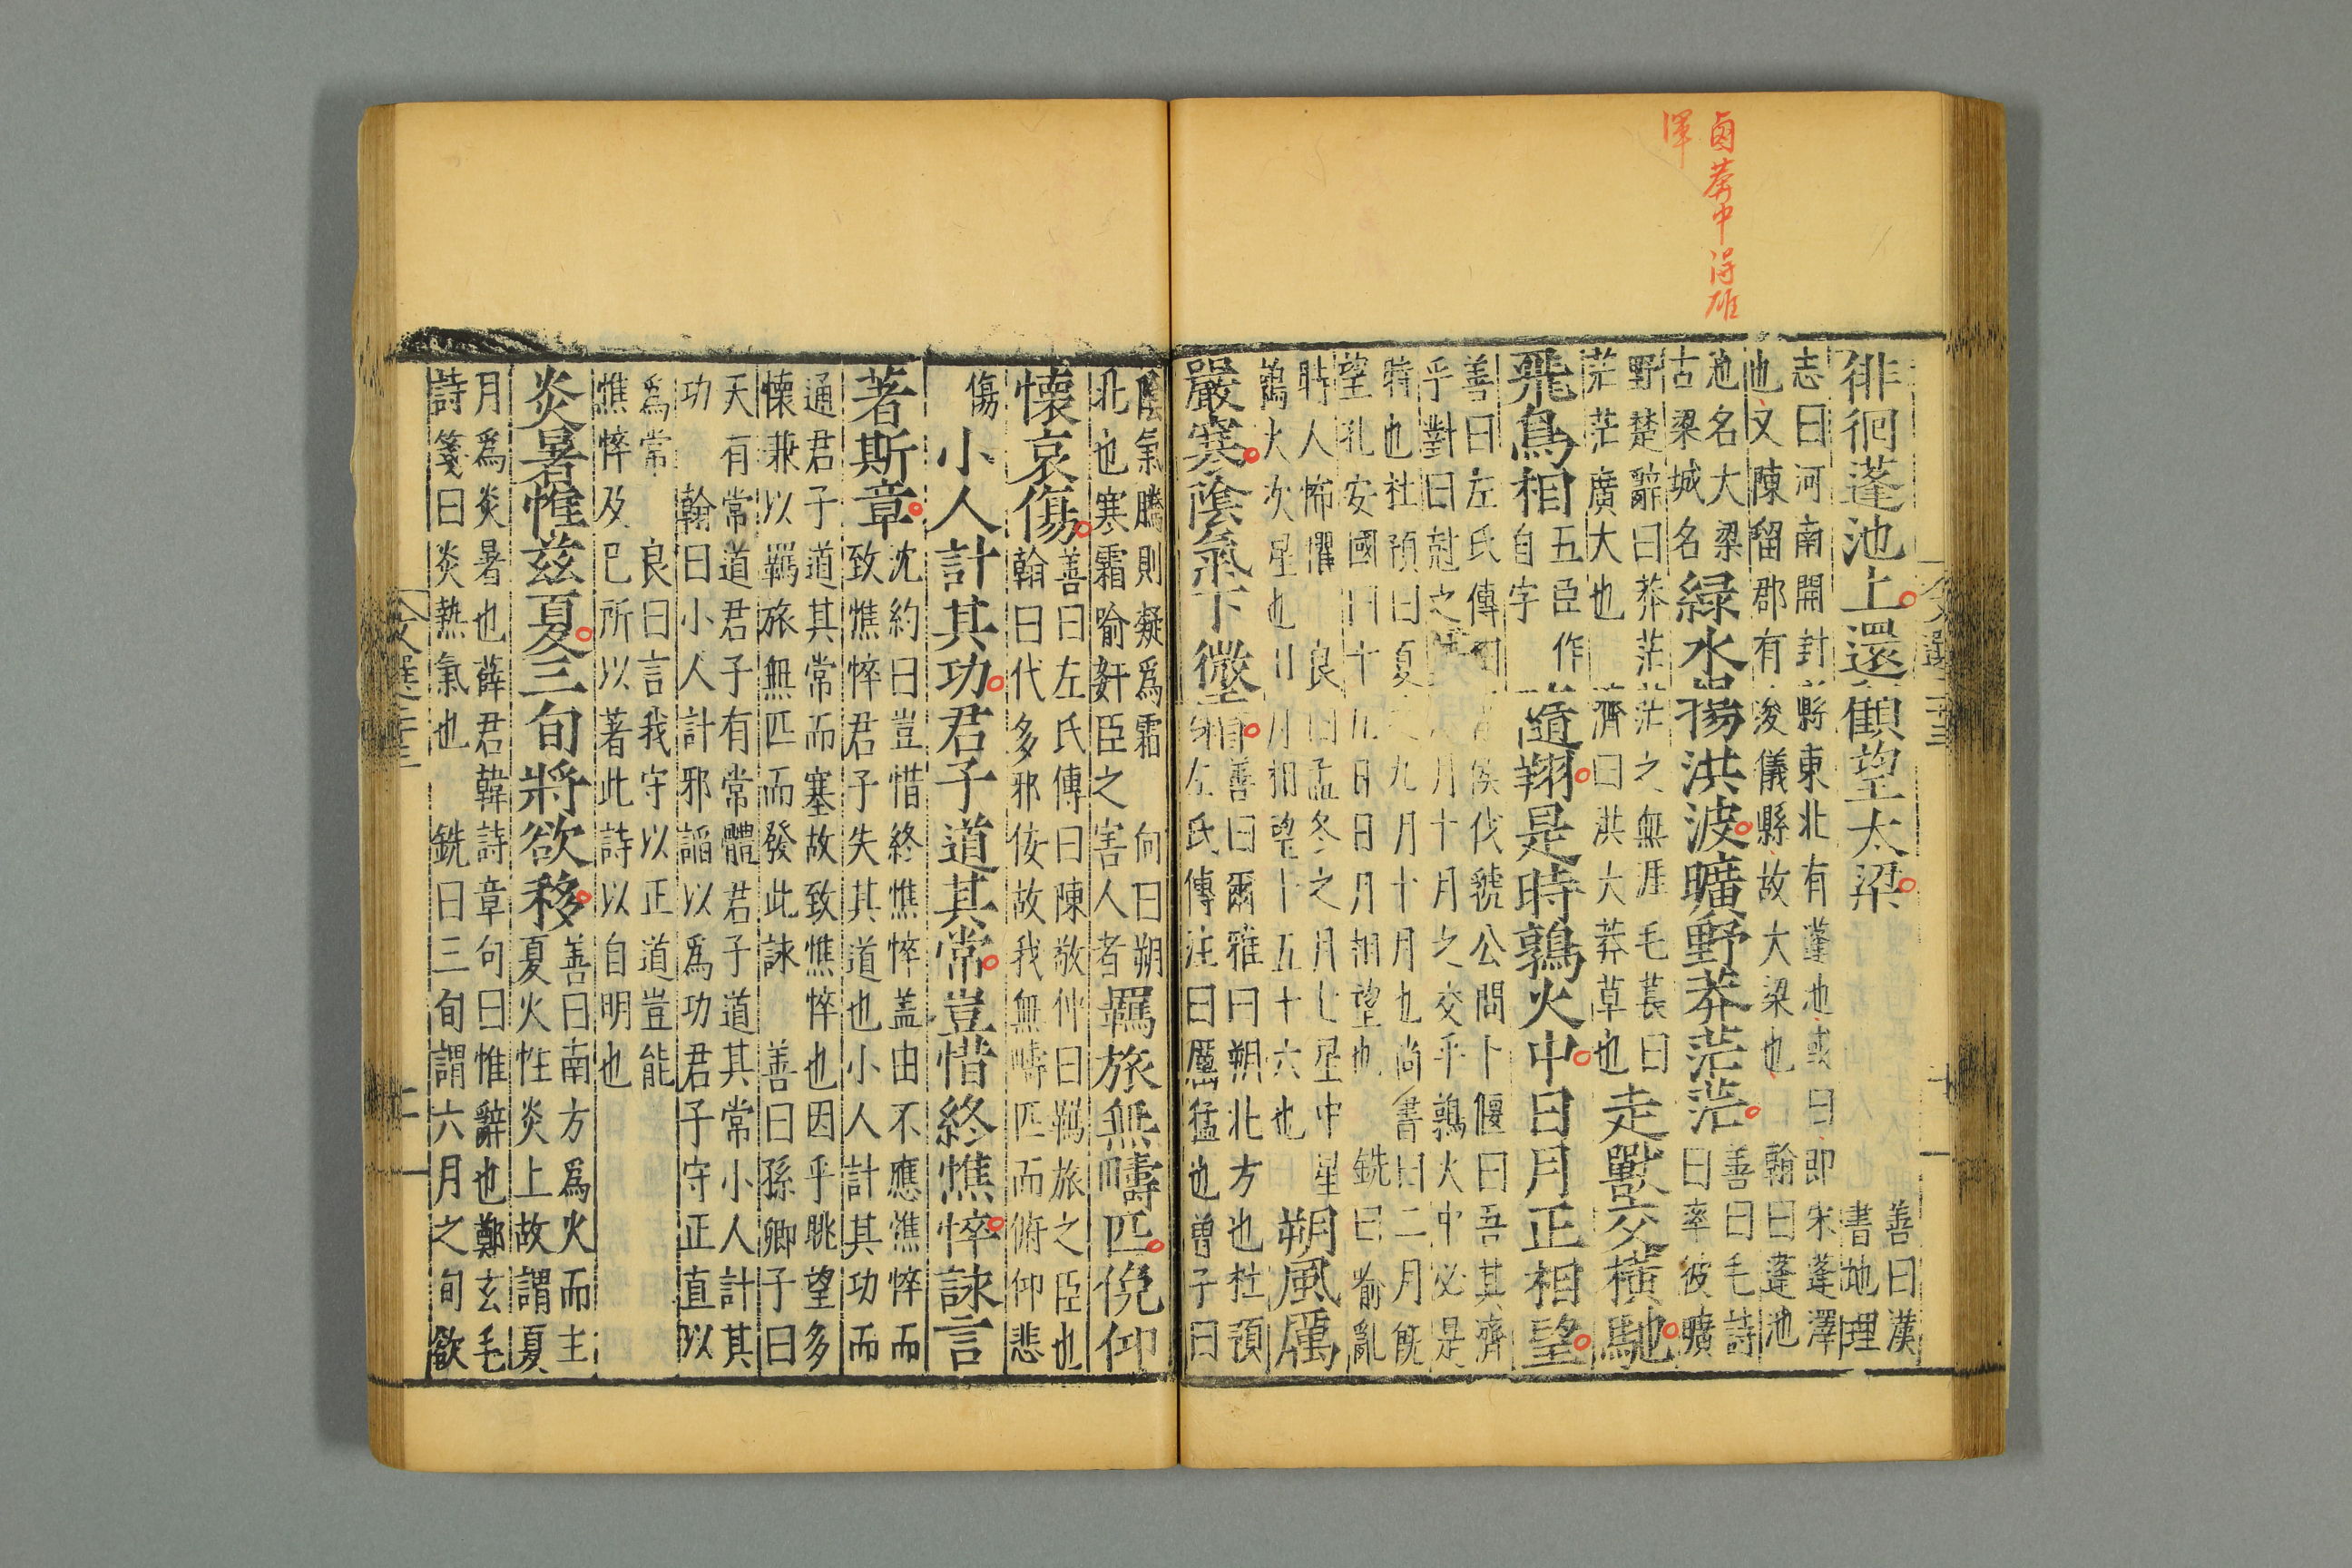 鹵莽中得雄
渾
徘徊蓬池上還顧望大梁善曰漢
書地理
志曰河南開封縣東北有蓬池或曰即宋蓬澤
也又陳留郡有浚儀縣故大梁也翰曰蓬池
池名大梁
古梁城名
綠水揚洪波曠野莽茫茫善曰毛詩
曰率彼曠
野楚辭曰莽茫茫之無涯毛萇曰
茫茫廣大也濟曰洪大莽草也
走獸交橫馳
飛鳥相五臣作
自字
隨翔是時鶉火中日月正相望
善曰左氏傳侯伐虢公問卜偃曰吾其濟
乎對曰尅之月十月之交乎鶉火中必是
時也杜預曰夏九月十月也尚書曰二月旣
望孔安國曰十五日日月相望也銑曰喻亂
時人怖懼良曰孟冬之月七星中星
鶉火次星也月相望十五十六也
朔風厲
嚴寒陰氣下微霜善曰爾雅曰朔北方也杜預
左氏傳注曰厲猛也曾子曰
陰氣騰則凝爲霜向曰朔
北也寒霜喻姧臣之害人者
羈旅無疇匹俛仰
懷哀傷善曰左氏傳曰陳敬仲曰羈旅之臣也
翰曰代多邪佞故我無疇匹而俯仰悲
傷
小人計其功君子道其常豈惜終憔悴詠言
著斯章沈約曰豈惜終憔悴盖由不應憔悴而
致憔悴君子失其道也小人計其功而
通君子道其常而塞故致憔悴也因乎眺望多
懷兼以羈旅無匹而發此詠善曰孫卿子曰
天有常道君子有常體君子道其常小人計其
功翰曰小人計邪謟以爲功君子守正直以
爲常良曰言我守以正道豈能
憔悴及巳所以著此詩以自明也
炎暑惟茲夏三旬將欲移善曰南方爲火而主
夏火性炎上故謂夏
月爲炎暑也薛君韓詩章句曰惟辭也鄭玄毛
詩箋曰炎熱氣也銑曰三旬謂六月之旬欲